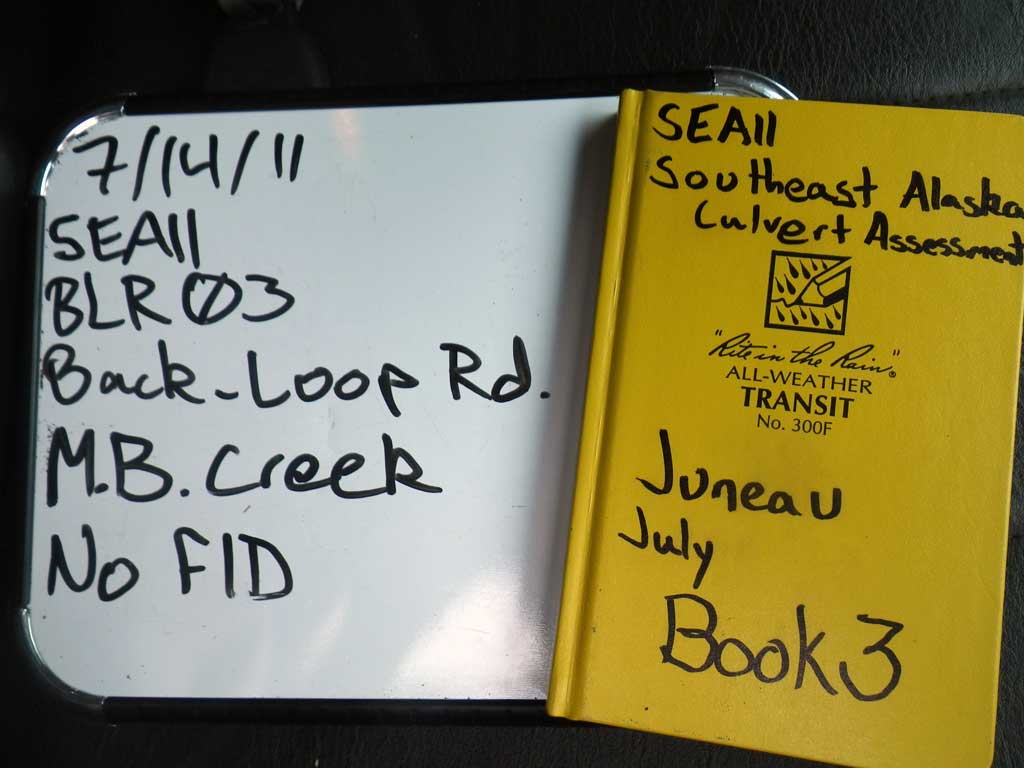 7/14/11
SEA11
BLR Ø3
Back-Loop Rd.
M.B. Creek
No FID
SEA11
Southeast Alaska
Culvert Assessment
"Rite in the Rain"®
ALL-WEATHER
TRANSIT
No. 300F
Juneau
July
Book 3